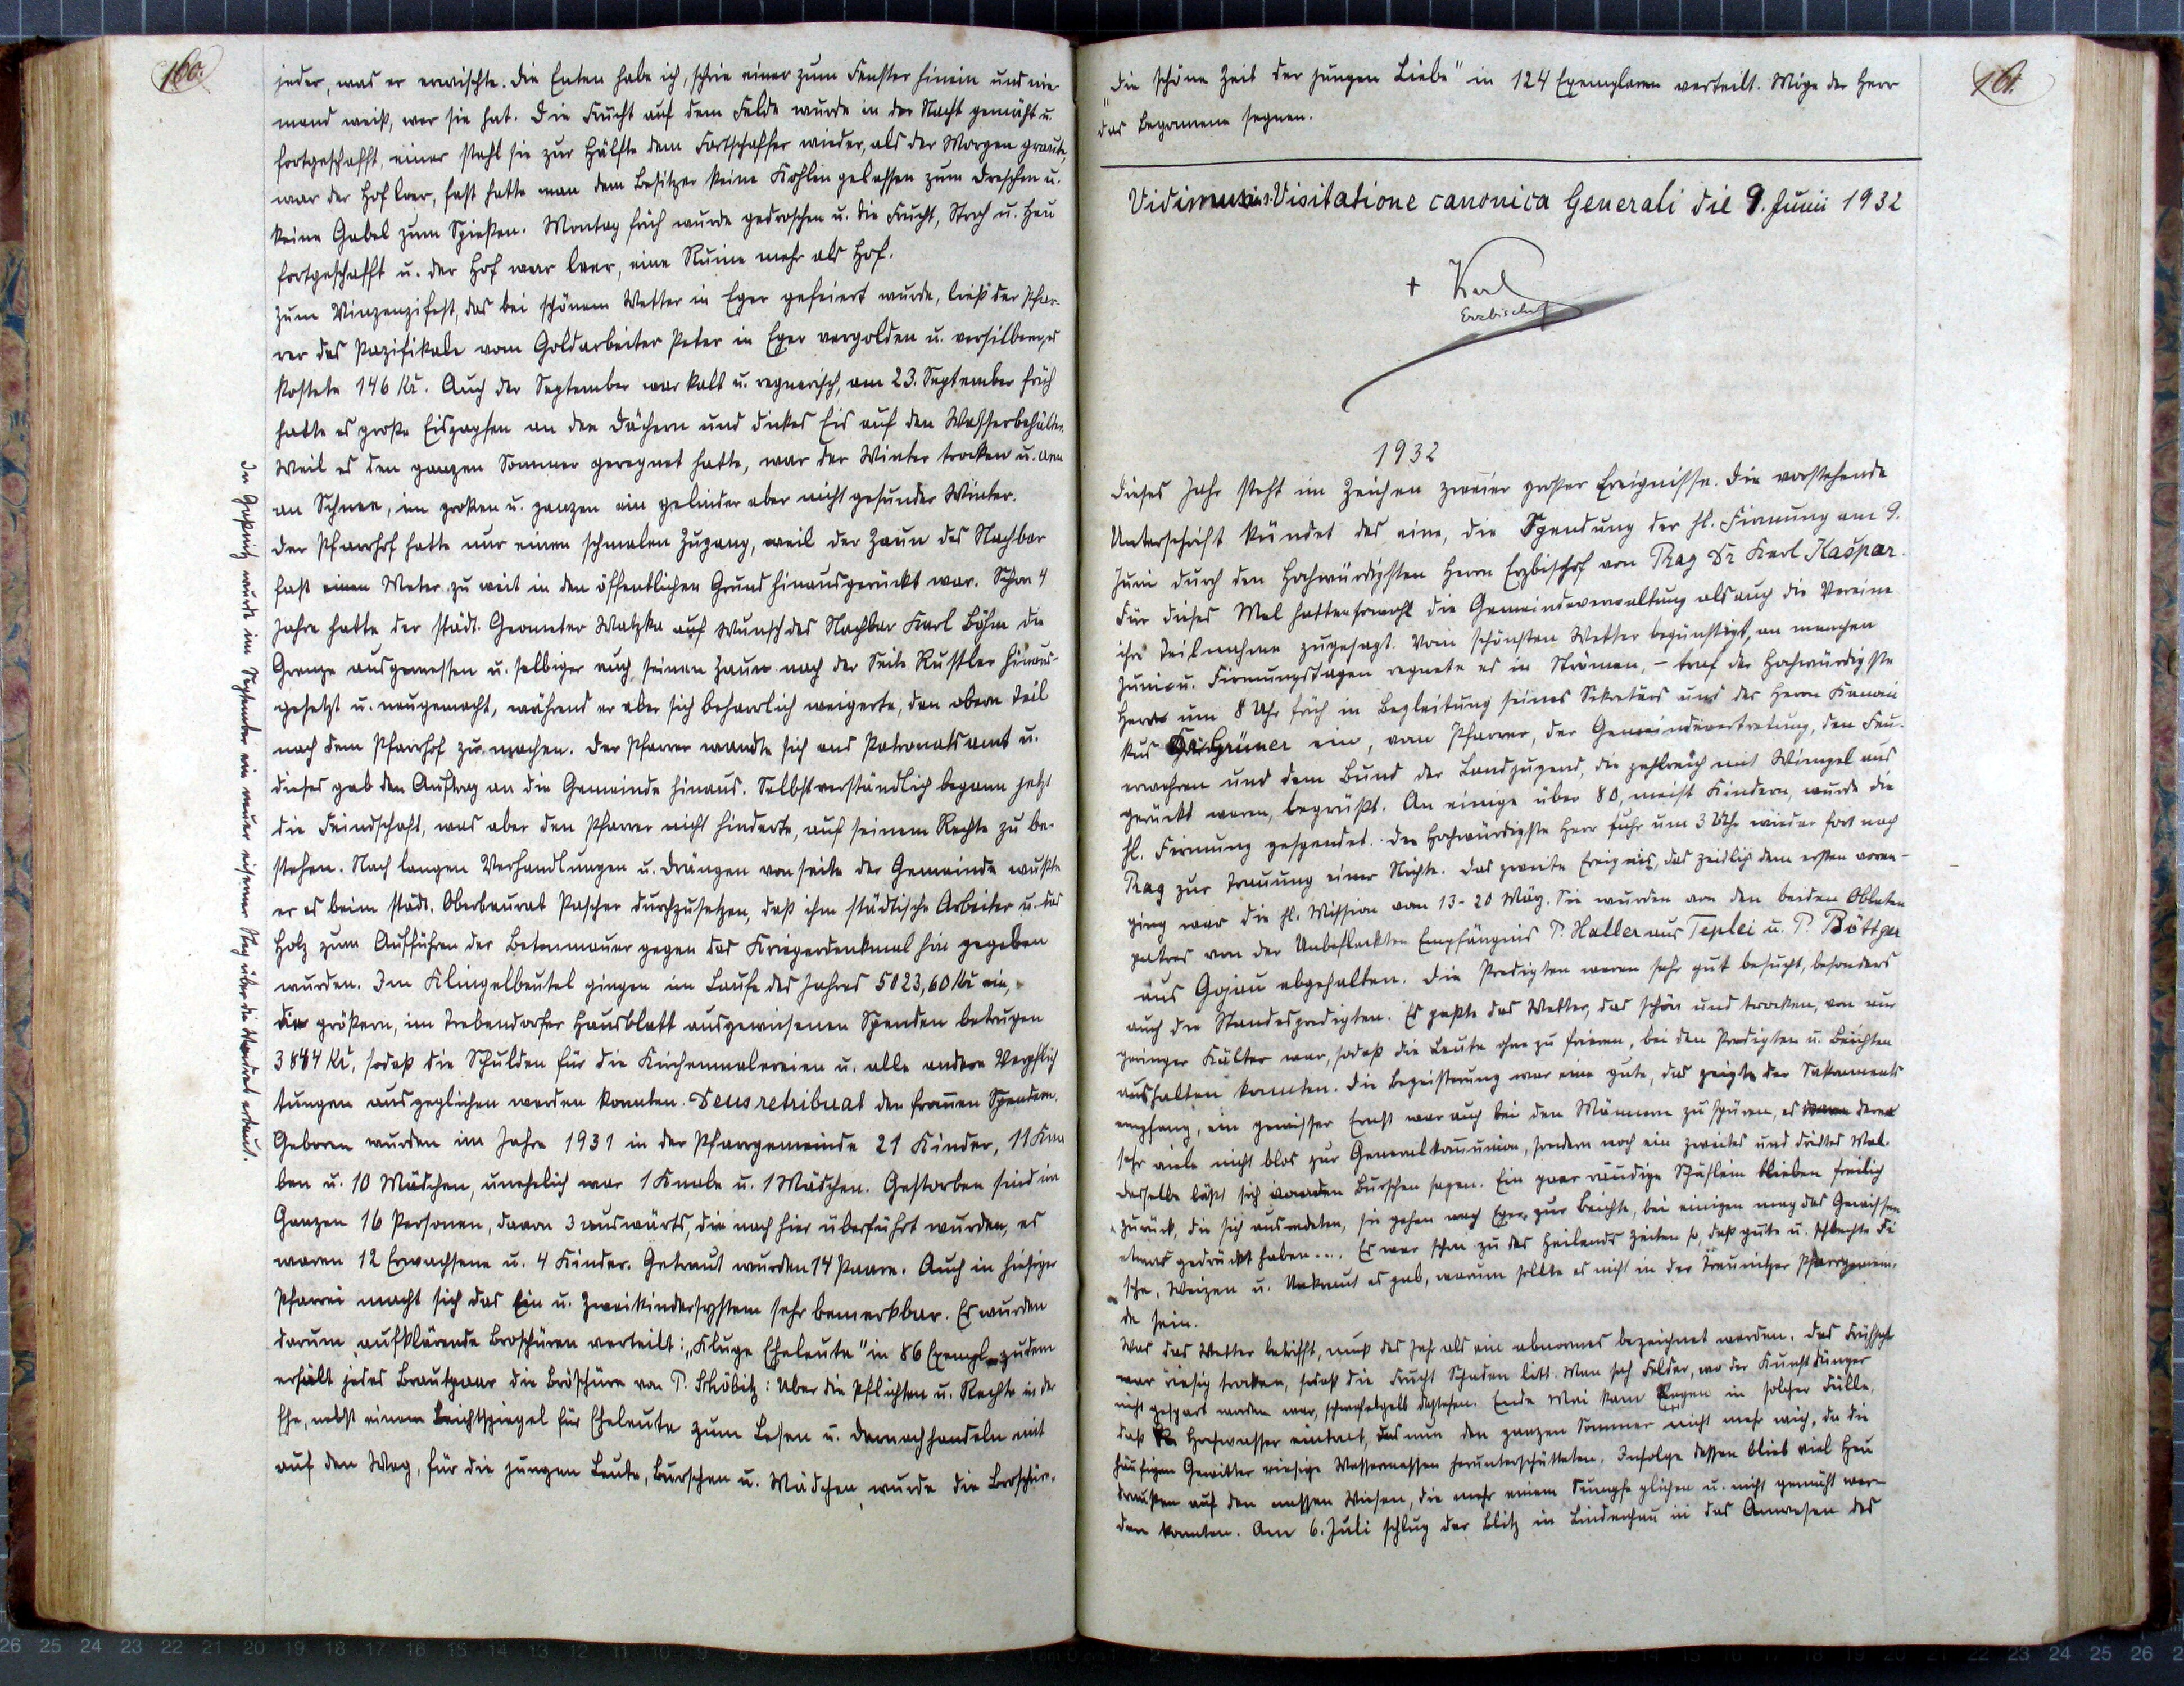 160.
jeder, was er erwischte. Die Enten habe ich, schrie einer zum Fenster hinein und nie-
mand weiß, wer sie hat. Die Frucht auf dem Felde wurde in der Nacht gemäht u.
fortgeschafft, einer stahl sie zur Hälfte dem Fortschaffer wieder, als der Morgen graute,
war der Hof leer, fast hatte man dem Besitzer keine Kohlen gelassen zum Dreschen u.
keine Gabel zum Spießen. Montag früh wurde gedroschen u. die Frucht, Stroh u. Heu
fortgeschafft u. der Hof war leer, eine Ruine mehr als Hof.
Zum Vinzenzifest, das bei schönem Wetter in Eger gefeiert wurde, ließ der Pfar-
rer das Pazifikale vom Goldarbeiter Peter in Eger vergolden u. versilbern, es
kostete 146 Kč. Auch der September war kalt u. regnerisch, am 23. September früh
hatte es große Eiszapfen an den Dächern und dickes Eis auf den Wasserbehälter.
Weil es den ganzen Sommer geregnet hatte, war der Winter trocken u. arm
an Schnee, im großen u. ganzen ein gelinder aber nicht gesunder Winter.
Der Pfarrhof hatte nur einen schmalen Zugang, weil der Zaun des Nachbar
fast einen Meter zu weit in den öffentlichen Grund hinausgerückt war. Schon 4
Jahre hatte der städt. Geometer Watzka auf Wunsch des Nachbar Karl Böhm die
Grenze ausgemessen u. selbiger auch seinen Zaun nach der Seite Rustler hinaus-
gesetzt u. neugemacht, während er aber sich beharrlich weigerte, den obern Teil
nach dem Pfarrhof zu machen. Der Pfarrer wandte sich ans Patronatsamt u.
dieses gab den Auftrag an die Gemeinde hinaus. Selbstverständlich begann jetzt
die Feindschaft, was aber den Pfarrer nicht hinderte, auf seinem Rechte zu be-
stehen. Nach langen Verhandlungen u. Drängen von seite der Gemeinde wußte
er es beim städt. Oberbaurat Pascher durchzusetzen, daß ihm städtische Arbeiter u. das
Holz zum Aufführen der Betonmauer gegen das Kriegerdenkmal hin gegeben
wurden. Im Klingelbeutel gingen im Laufe des Jahres 5023,60 Kč ein,
die größern, im Trebendorfer Hausblatt ausgewiesenen Spenden betrugen
3844 Kč, sodaß die Schulden für die Kirchenmalereien u. alle andere Verpflich
tungen ausgeglichen werden konnten. Deus retribuat den frommen Spendern.
Geboren wurden im Jahre 1931 in der Pfarrgemeinde 21 Kinder, 11 Kna
ben u. 10 Mädchen, unehelich war 1 Knabe u. 1 Mädchen. Gestorben sind im
Ganzen 16 Personen, davon 3 auswärts, die nach hier überführt wurden, es
waren 12 Erwachsene u. 4 Kinder. Getraut wurden 14 Paare. Auch in hiesiger
Pfarrei macht sich das Ein u. Zweikindersystem sehr bemerkbar. Es wurden
darum aufklärende Broschüren verteilt: „Kluge Eheleute" in 86 Exempl. zudem
erhält jedes Brautpaar die Broschüre von P. Sköbitz: Uber die Pflichten u. Rechte in der
Ehe, nebst einem Beichtspiegel für Eheleute zum Lesen u. Darnachhandeln mit
auf den Weg, für die jungen Leute, Burschen u. Mädchen wurde die Broschür.
wurde im September ein neuer eiserner Steg über die Wondreb erbaut.
161.
„Die schöne Zeit der jungen Liebe" in 124 Exemplaren verteilt. Möge der Herr
das Begonnene segnen.
Vidimus in Visitatione canonica Generali die 9. Junii 1932
+ Karl
Erzbischof
1932
Dieses Jahr steht im Zeichen zweier großer Ereignisse. Die vorstehende
Unterschrift kündet das eine, die Spendung der hl. Firmung am 9.
Juni durch den Hochwürdigsten Herrn Erzbischof von Prag Dr Karl Kašpar.
Für dieses Mal hatten sowohl die Gemeindeverwaltung als auch die Vereine
ihre Teilnahme zugesagt. Vom schönsten Wetter begünstigt, an manchen
Juni u. Firmungstagen regnete es in Strömen, – traf der Hochwürdigste
Herr um 8 Uhr früh in Begleitung seines Sekretärs und des Herrn Kanoni
kus Dr Grüner ein, vom Pfarrer, der Gemeindevertretung, den Feu-
erwehren und dem Bund der Landjugend, die zahlreich mit Wimpel aus
gerückt waren, begrüßt. An einige über 80, meist Kindern, wurde die
hl. Firmung gespendet. Der Hochwürdigste Herr fuhr um 3 Uhr wieder fort nach
Prag zur Trauung einer Nichte. Das zweite Ereignis, das zeitlich dem ersten voran-
ging war die hl. Mission vom 13-20 März. Sie wurden von den beiden Oblaten
patres von der Unbefleckten Empfängnis P. Haller aus Teplei u. P. Böttger
aus Gojau abgehalten. Die Predigten waren sehr gut besucht, besonders
auch die Standespredigten. Es paßte das Wetter, das schön und trocken, von nur
geringer Kälte war, sodaß die Leute ohne zu frieren, bei den Predigten u. Beichten
aushalten konnten. Die Begeisterung war eine gute, das zeigte der Sakraments
empfang, ein gewisser Ernst war auch bei den Männern zu spüren, es deren
sehr viele nicht blos zur Generalkommunion, sondern noch ein zweites und drittes Mal.
Dasselbe läßt sich von den Burschen sagen. Ein paar räudige Schäflein blieben freilich
zurück, die sich ausredeten, sie gehen nach Eger zur Beichte, bei einigen mag das Gewissen
etwas gedrückt haben.... Es war schon zu des Heilands Zeiten so, daß gute u. schlechte Fi
sche, Weizen u. Unkraut es gab, warum sollte es nicht in der Treunitzer Pfarrgemein-
de sein.
Was das Wetter betrifft, muß das Jahr als ein abnormes bezeichnet werden. Das Frühjahr
war riesig trocken, sodaß die Frucht Schaden litt. Man sah Felder, wo der Kunstdünger
nicht gespart worden war, schwefelgelb dastehen. Ende Mai kam Regen in solcher Fülle,
daß Hochwasser eintrat, das nun den ganzen Sommer nicht mehr wich, da die
häufigen Gewitter riesige Wassermassen herunterschütteten. Infolge dessen blieb viel Heu
draußen auf den nassen Wiesen, die mehr einem Sumpfe glichen u. nicht gemäht wer-
den konnten. Am 6. Juli schlug der Blitz in Lindenhau in das Anwesen des